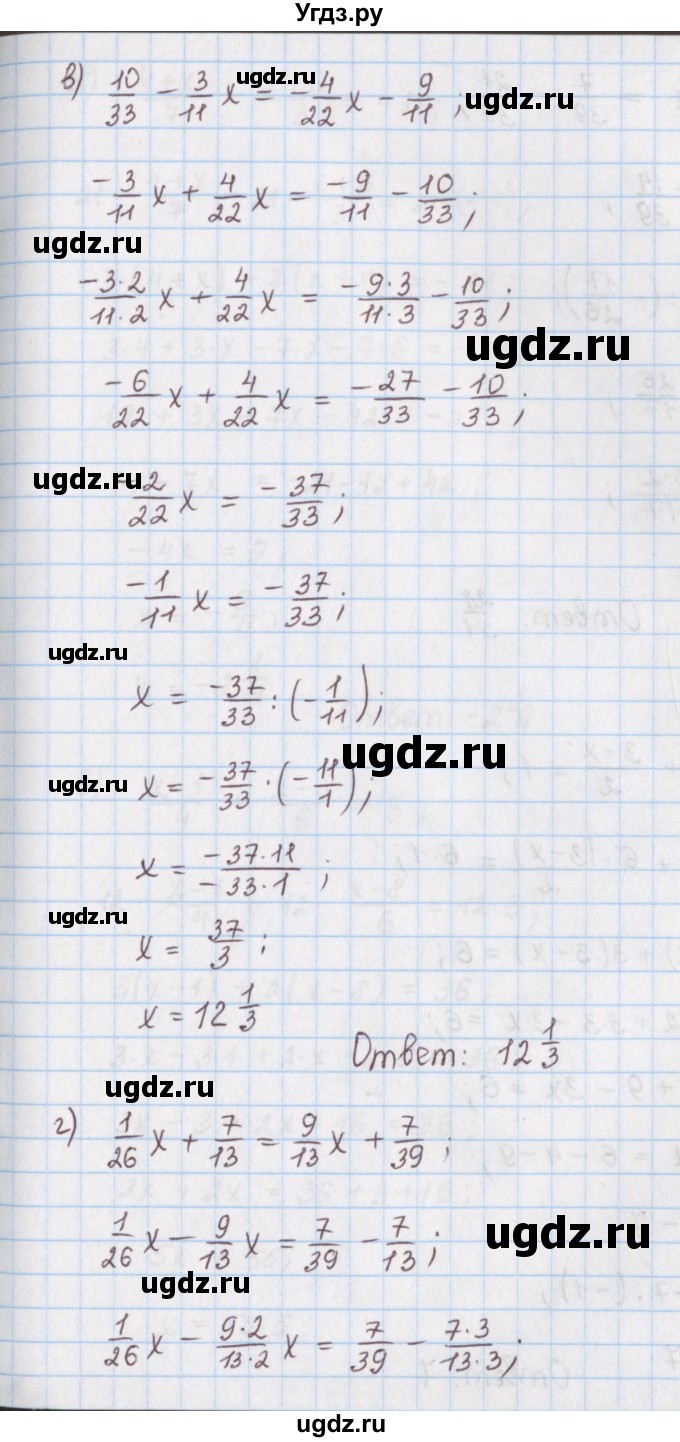 Угдз.ру
в) 10/33 − 3/11 x = −4/22 x − 9/11 ;
ugdz.ru
ugdz.ru
−3/11 x + 4/22 x = −9/11 − 10/33 ;
ugdz.ru
−3·2/11·2 x + 4/22 x = −9·3/11·3 − 10/33 ;
ugdz.ru
−6/22 x + 4/22 x = −27/33 − 10/33 ;
ugdz.ru
−2/22 x = −37/33 ;
−1/11 x = −37/33 ;
ugdz.ru
x = −37/33 : (−1/11) ;
ugdz.ru
ugdz.ru
x = −37/33 · (−11/1) ;
x = −37·11/−33·1 ;
ugdz.ru
x = 37/3 ;
x = 12 1/3
Ответ: 12 1/3
ugdz.ru
г) 1/26 x + 7/13 = 9/13 x + 7/39 ;
1/26 x − 9/13 x = 7/39 − 7/13 ;
ugdz.ru
ugdz.ru
1/26 x − 9·2/13·2 x = 7/39 − 7·3/13·3 ;
ugdz.ru